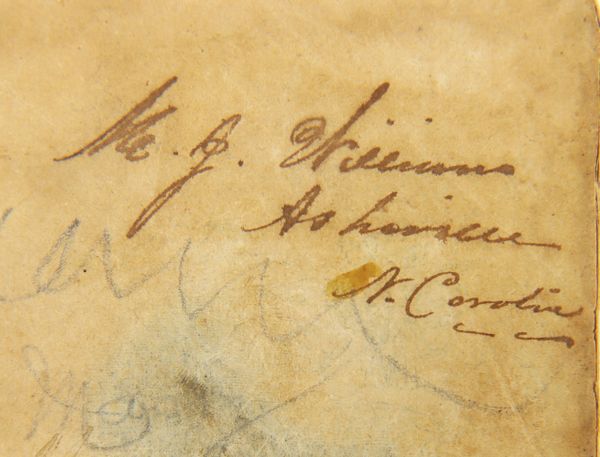 M. J. Williams
Asheville
N. Carolin